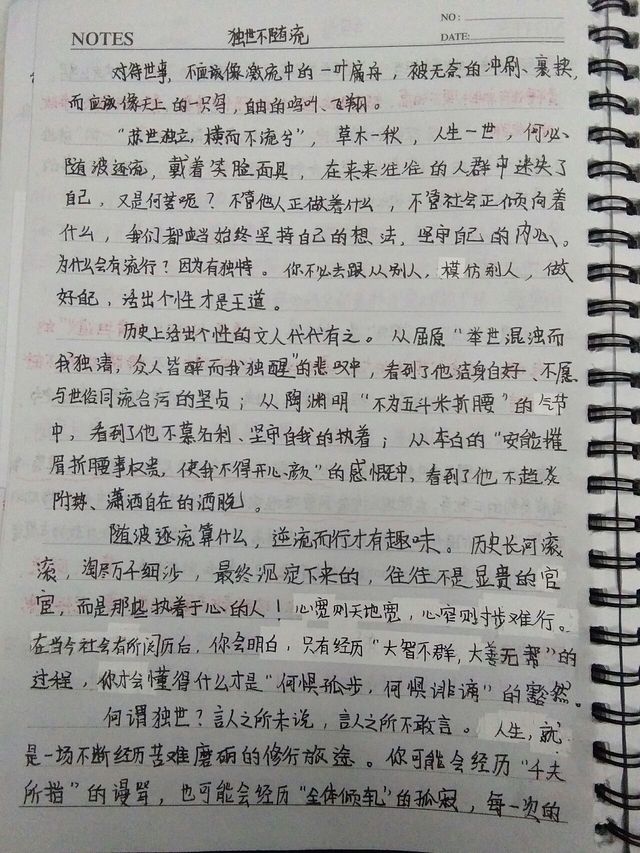 NO:
NOTES 独世不随流 DATE:
对待世事,不应该像激流中的一叶扁舟,被无奈的冲刷、裹挟,
而应该像天上的一只鸟,自由的鸣叫、飞翔。
"苏世独立,横而不流兮",草木一秋,人生一世,何必
随波逐流,戴着笑脸面具,在来来往往的人群中迷失了
自己,又是何苦呢?不管他人正做着什么,不管社会正倾向着
什么,我们都当始终坚持自己的想法,坚守自己的内心。
为什么会有流行?因为有独特。你不必去跟从别人,模仿别人,做
好自己,活出个性才是王道。
历史上活出个性的文人代代有之。从屈原"举世混浊而
我独清,众人皆醉而我独醒"的悲叹中,看到了他洁身自好、不愿
与世俗同流合污的坚贞;从陶渊明"不为五斗米折腰"的气节
中,看到了他不慕名利、坚守自我的执着;从李白的"安能摧
眉折腰事权贵,使我不得开心颜"的感慨中,看到了他不趋炎
附势、潇洒自在的洒脱。
随波逐流算什么,逆流而行才有趣味。历史长河滚
滚,淘尽万千细沙,最终沉淀下来的,往往不是显贵的官
宦,而是那些执着于心的人!心宽则天地宽,心窄则寸步难行。
在当今社会有所阅历后,你会明白,只有经历"大智不群,大善无帮"的
过程,你才会懂得什么才是"何惧孤步,何惧诽谤"的豁然。
何谓独世?言人之所未说,言人之所不敢言。人生,就
是一场不断经历苦难磨砺的修行旅途。你可能会经历"千夫
所指"的谩骂,也可能会经历"全体倾轧"的孤寂,每一次的